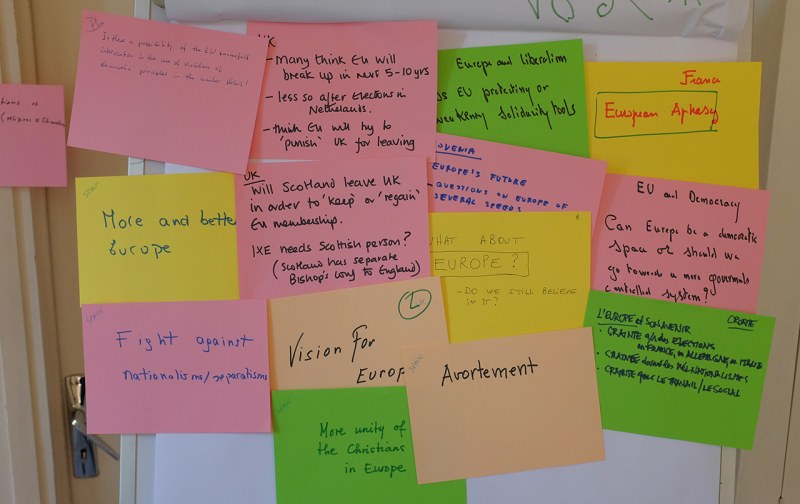 Is there a possibility of the EU
intervention in the case of violations of
democratic principles in the member states?
UK
- Many think EU will
break up in next 5-10 yrs
- less so after elections in
Netherlands.
- think EU will try to
'punish' UK for leaving
Europe and liberalism
EU protesting or
solidarity tools
France
European Aphasy
More and better
Europe
UK
Will Scotland leave UK
in order to 'keep' or 'regain'
EU membership.
IXE needs Scottish person?
(Scotland has separate
Bishop's Conf to England)
EUROPE'S FUTURE
QUESTIONS ON EUROPE OF
SEVERAL SPEEDS
WHAT ABOUT
EUROPE?
- DO WE STILL BELIEVE
IN IT?
EU and Democracy
Can Europe be a democratic
space or should we
go towards a more governments
controlled system?
Fight against
nationalisms/separatisms
Vision For
Europ
L'EUROPE et SON AVENIR
CROATIE
• CRAINTE des ELECTIONS
en FRANCE, en ALLEMAGNE, en ITALIE
• CRAINTE des NATIONALISMES
• CRAINTE pour LE TRAVAIL/LE SOCIAL
Avortement
More unity of
the Christians
in Europe